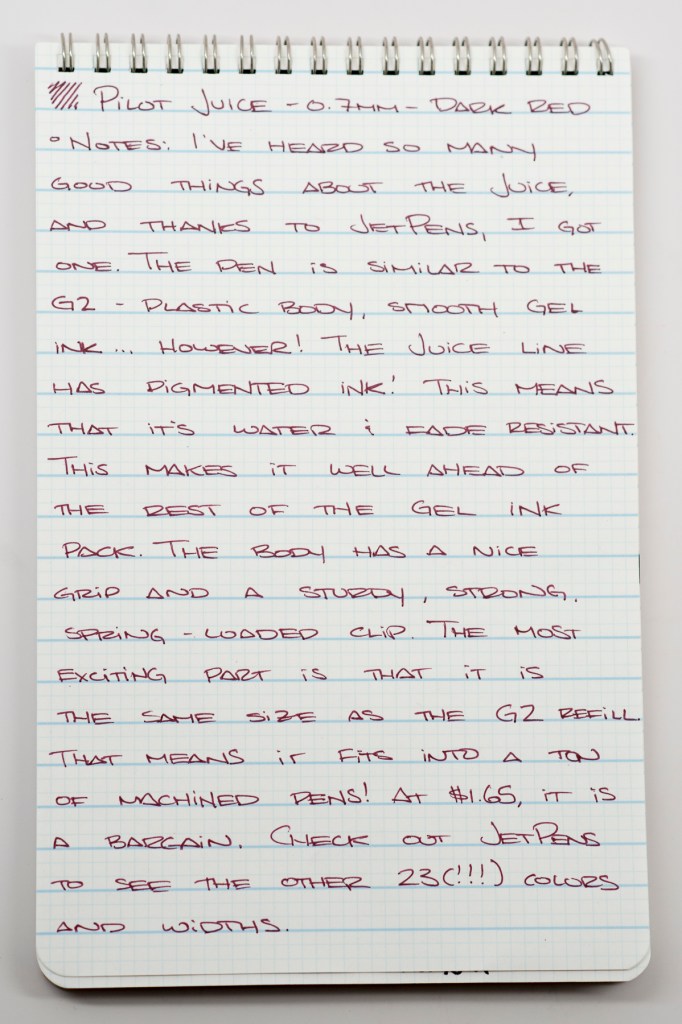 PILOT JUICE - 0.7MM - DARK RED
° NOTES: I'VE HEARD SO MANY
GOOD THINGS ABOUT THE JUICE,
AND THANKS TO JETPENS, I GOT
ONE. THE PEN IS SIMILAR TO THE
G2 - PLASTIC BODY, SMOOTH GEL
INK... HOWEVER! THE JUICE LINE
HAS PIGMENTED INK! THIS MEANS
THAT IT'S WATER & FADE RESISTANT.
THIS MAKES IT WELL AHEAD OF
THE REST OF THE GEL INK
PACK. THE BODY HAS A NICE
GRIP AND A STURDY, STRONG,
SPRING-LOADED CLIP. THE MOST
EXCITING PART IS THAT IT IS
THE SAME SIZE AS THE G2 REFILL.
THAT MEANS IT FITS INTO A TON
OF MACHINED PENS! AT $1.65, IT IS
A BARGAIN. CHECK OUT JETPENS
TO SEE THE OTHER 23(!!!) COLORS
AND WIDTHS.